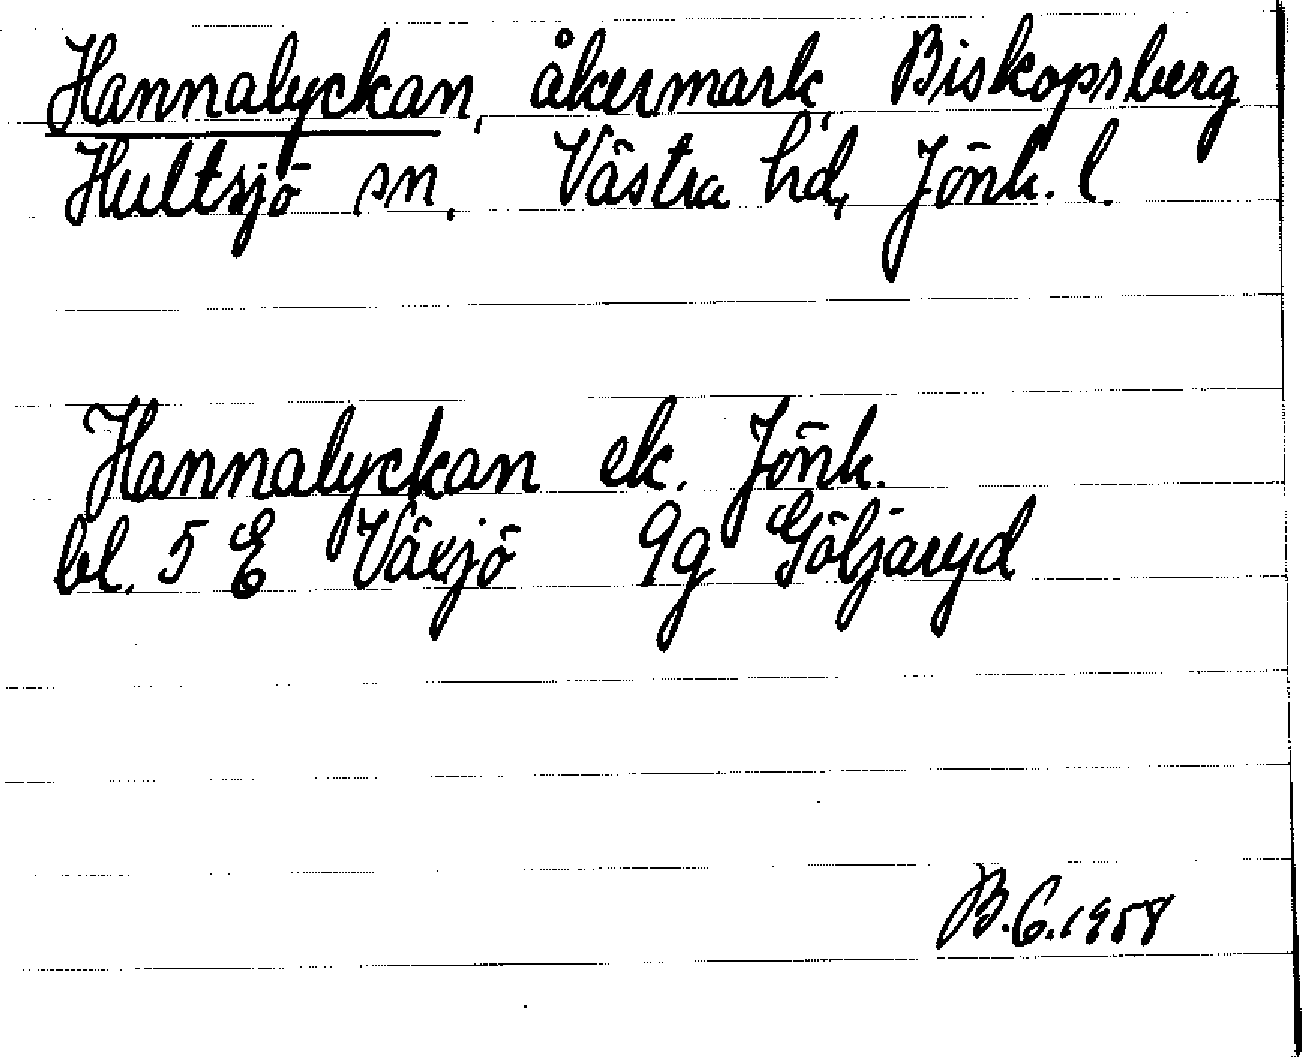 Hannalyckan, åkermark, Biskopsberg
Hultsjö sn, Västra hd, Jönk. l.
Hannalyckan ek. Jönk.
bl. 5 E Växjö 9g Göljaryd
B.C. 1958